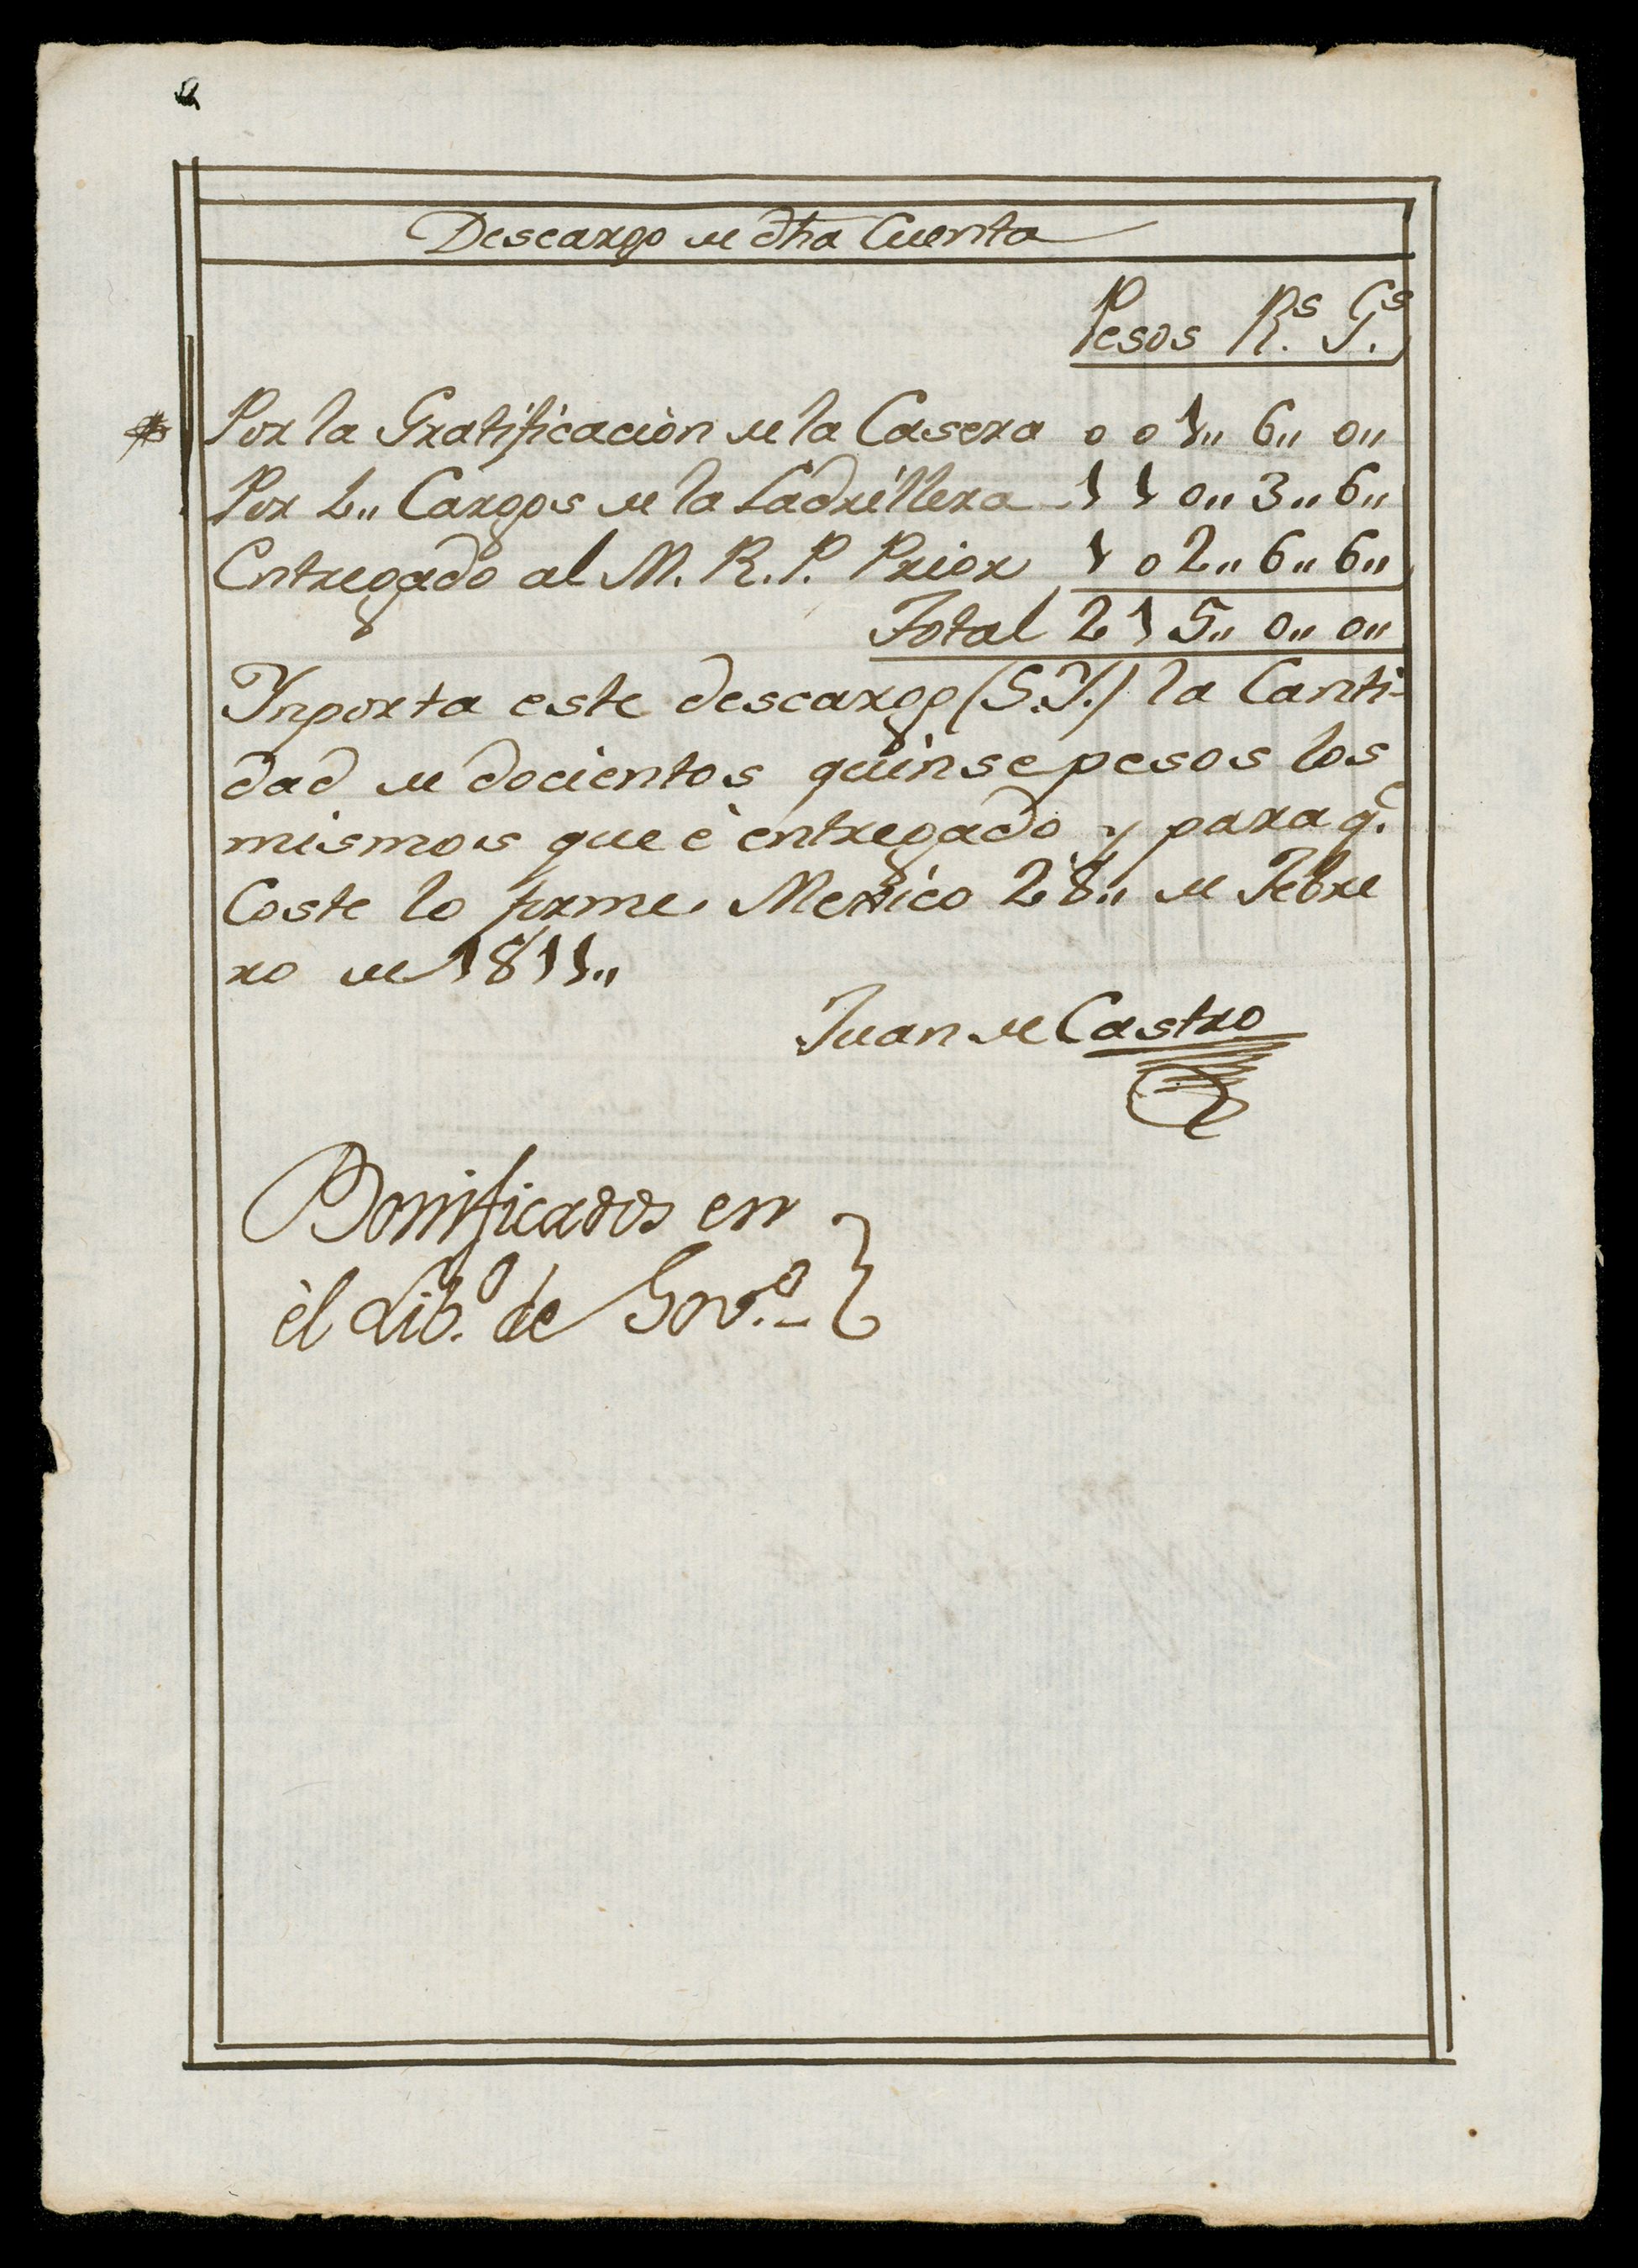 Descargo de dha Cuenta
Pesos Rs. Gs.
Por la Gratificaciòn de la Casera 0 0 1,, 6,, 0,,
Por 2,, Cargos de la Ladrillera 1 1 0,, 3,, 6,,
Entregado al M. R. P. Prior 1 0 2,, 6,, 6,,
Total 2 1 5,, 0,, 0,,
Ynporta este descargo (S.Y.) la Canti-
dad de docientos quinse pesos los
mismos que è entregado y para q.e
Coste lo firme. Mexico 28,, de Febre
ro de 1811,,
Juan de Castro
Bonificados en
èl Lib.o de Gov.o